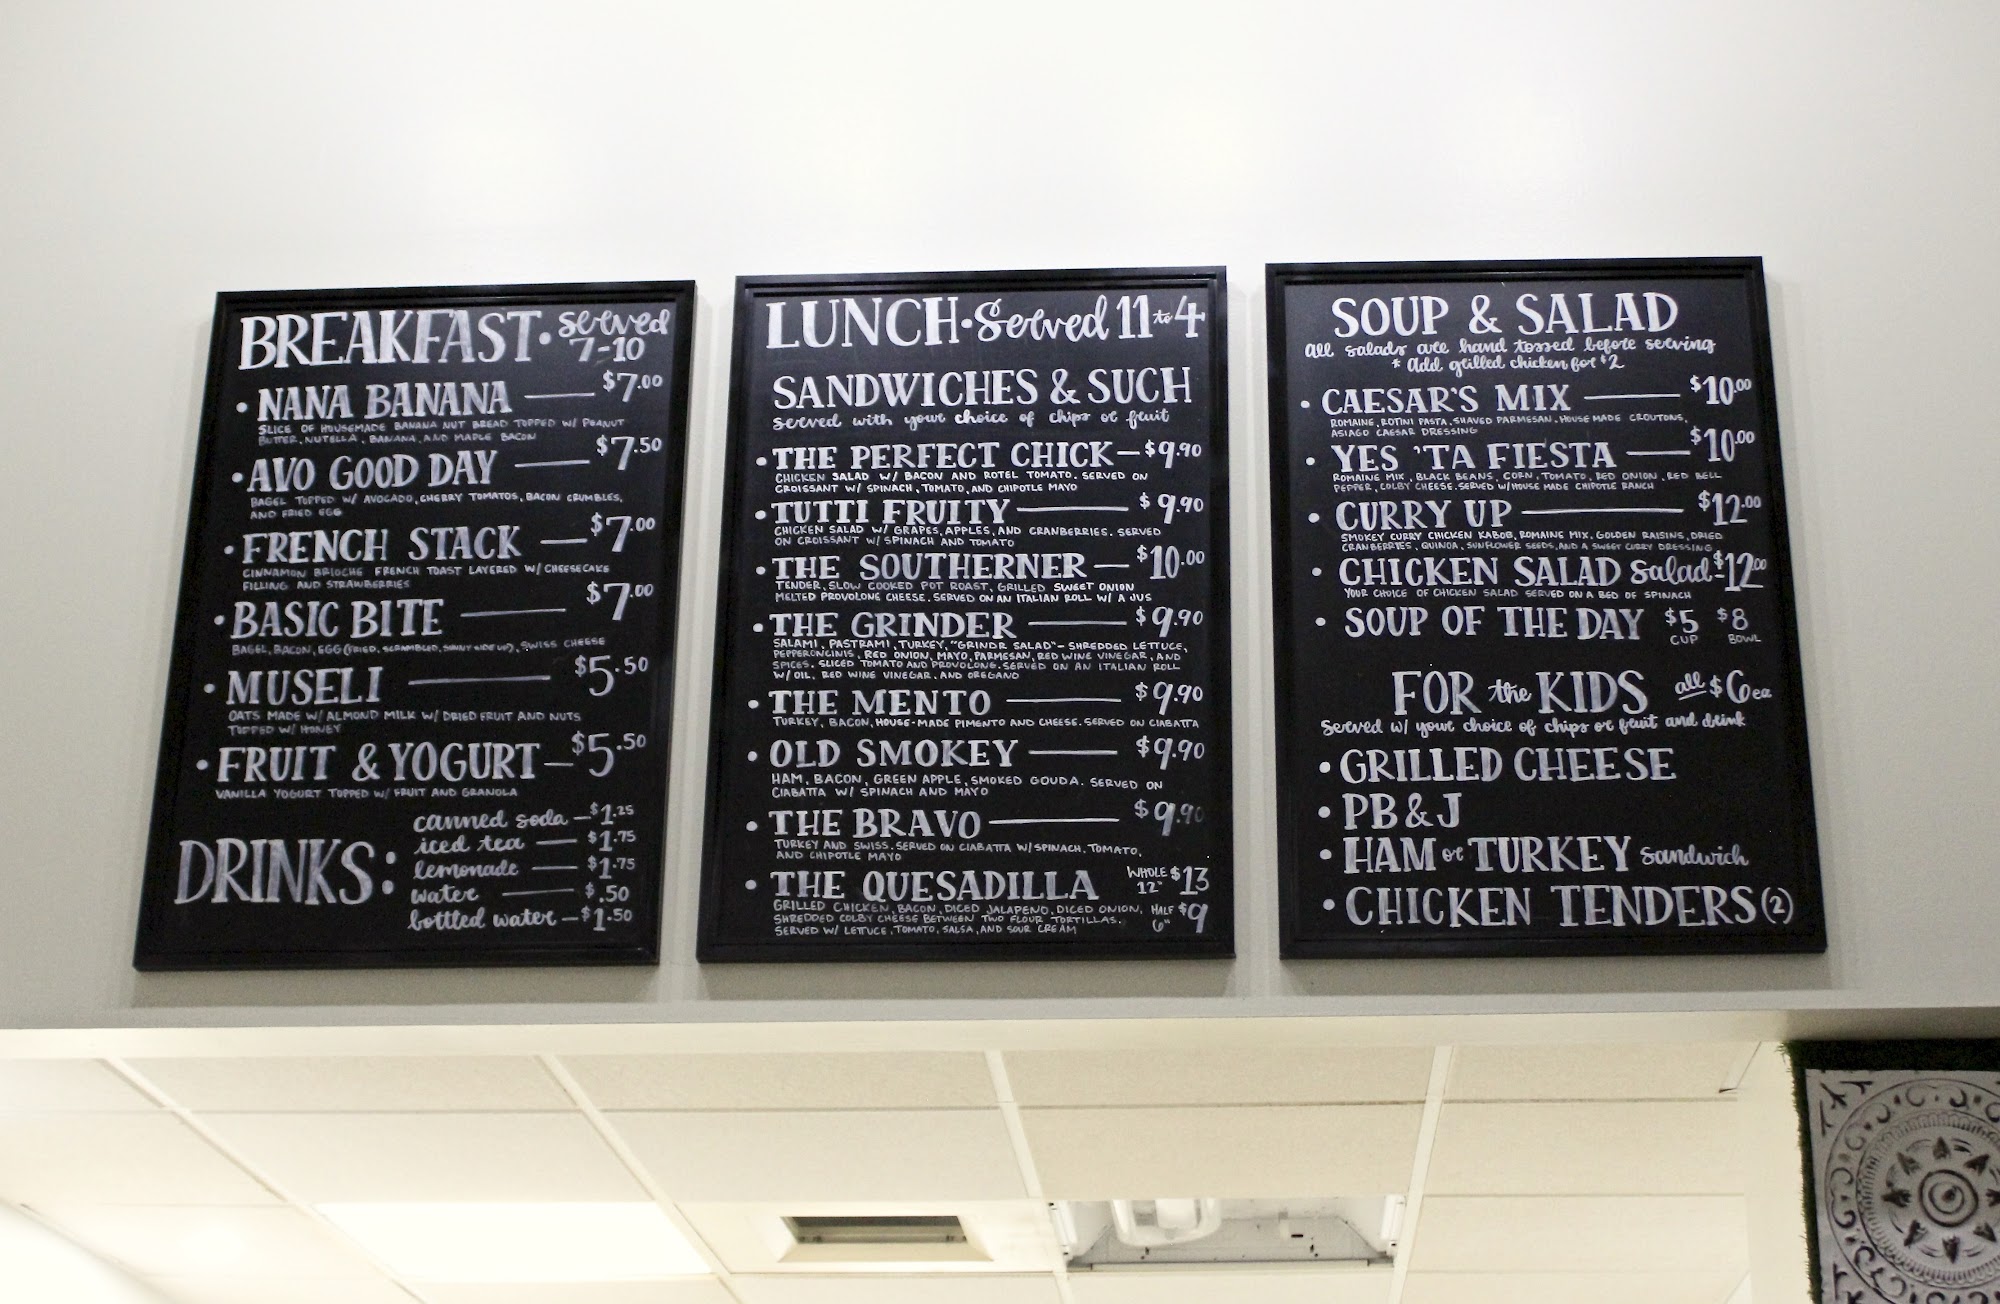 BREAKFAST • served 7-10
• NANA BANANA — $7.00
SLICE OF HOUSEMADE BANANA NUT BREAD TOPPED W/ PEANUT
BUTTER, NUTELLA, BANANA, AND MAPLE BACON
• AVO GOOD DAY — $7.50
BAGEL TOPPED W/ AVOCADO, CHERRY TOMATOS, BACON CRUMBLES,
AND FRIED EGG
• FRENCH STACK — $7.00
CINNAMON BRIOCHE FRENCH TOAST LAYERED W/ CHEESECAKE
FILLING AND STRAWBERRIES
• BASIC BITE — $7.00
BAGEL, BACON, EGG (FRIED, SCRAMBLED, SUNNY SIDE UP), SWISS CHEESE
• MUSELI — $5.50
OATS MADE W/ ALMOND MILK W/ DRIED FRUIT AND NUTS
TOPPED W/ HONEY
• FRUIT & YOGURT — $5.50
VANILLA YOGURT TOPPED W/ FRUIT AND GRANOLA
DRINKS:
canned soda — $1.25
iced tea — $1.75
lemonade — $1.75
water — $.50
bottled water — $1.50
LUNCH • Served 11 to 4
SANDWICHES & SUCH
served with your choice of chips or fruit
• THE PERFECT CHICK — $9.90
CHICKEN SALAD W/ BACON AND ROTEL TOMATO. SERVED ON
CROISSANT W/ SPINACH, TOMATO, AND CHIPOTLE MAYO
• TUTTI FRUITY — $9.90
CHICKEN SALAD W/ GRAPES, APPLES, AND CRANBERRIES. SERVED
ON CROISSANT W/ SPINACH AND TOMATO
• THE SOUTHERNER — $10.00
TENDER, SLOW COOKED POT ROAST, GRILLED SWEET ONION
MELTED PROVOLONE CHEESE. SERVED ON AN ITALIAN ROLL W/ A JUS
• THE GRINDER — $9.90
SALAMI, PASTRAMI, TURKEY, "GRINDR SALAD" - SHREDDED LETTUCE,
PEPPERONCINIS, RED ONION, MAYO, PARMESAN, RED WINE VINEGAR, AND
SPICES. SLICED TOMATO AND PROVOLONG. SERVED ON AN ITALIAN ROLL
W/ OIL, RED WINE VINEGAR, AND OREGANO
• THE MENTO — $9.90
TURKEY, BACON, HOUSE-MADE PIMENTO AND CHEESE. SERVED ON CIABATTA
• OLD SMOKEY — $9.90
HAM, BACON, GREEN APPLE, SMOKED GOUDA. SERVED ON
CIABATTA W/ SPINACH AND MAYO
• THE BRAVO — $9.90
TURKEY AND SWISS. SERVED ON CIABATTA W/ SPINACH, TOMATO,
AND CHIPOTLE MAYO
• THE QUESADILLA WHOLE 12" $13
GRILLED CHICKEN, BACON, DICED JALAPENO, DICED ONION, HALF 6" $9
SHREDDED COLBY CHEESE BETWEEN TWO FLOUR TORTILLAS.
SERVED W/ LETTUCE, TOMATO, SALSA, AND SOUR CREAM
SOUP & SALAD
all salads are hand tossed before serving
* Add grilled chicken for $2
• CAESAR'S MIX — $10.00
ROMAINE, ROTINI PASTA, SHAVED PARMESAN, HOUSE MADE CROUTONS,
ASIAGO CAESAR DRESSING
• YES 'TA FIESTA — $10.00
ROMAINE MIX, BLACK BEANS, CORN, TOMATO, RED ONION, RED BELL
PEPPER, COLBY CHEESE. SERVED W/ HOUSE MADE CHIPOTLE RANCH
• CURRY UP — $12.00
SMOKEY CURRY CHICKEN KABOB, ROMAINE MIX, GOLDEN RAISINS, DRIED
CRANBERRIES, QUINOA, SUNFLOWER SEEDS, AND A SWEET CURRY DRESSING
• CHICKEN SALAD salad - $12.00
YOUR CHOICE OF CHICKEN SALAD SERVED ON A BED OF SPINACH
• SOUP OF THE DAY $5 CUP $8 BOWL
FOR the KIDS all $6 ea
Served w/ your choice of chips or fruit and drink
• GRILLED CHEESE
• PB & J
• HAM or TURKEY sandwich
• CHICKEN TENDERS (2)